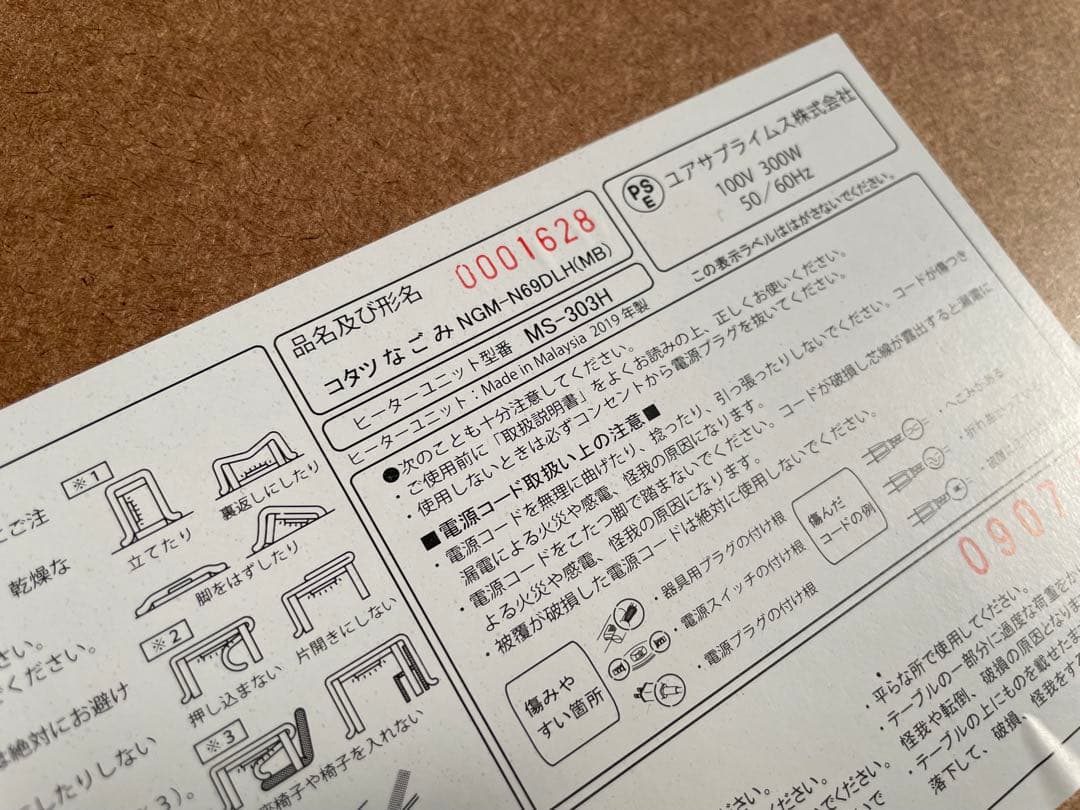 PS
E
ユアサプライムス株式会社
100V 300W
50／60Hz
この表示ラベルははがさないでください。
品名及び形名
0001628
コタツなごみ NGM-N69DLH(MB)
ヒーターユニット型番 MS-303H
ヒーターユニット：Made in Malaysia 2019年製
●次のことも十分注意してください。
・ご使用前に「取扱説明書」をよくお読みの上、正しくお使いください。
・使用しないときは必ずコンセントから電源プラグを抜いてください。
■電源コード取扱い上の注意■
・電源コードを無理に曲げたり、捻ったり、引っ張ったりしないでください。コードが傷つき
漏電による火災や感電、怪我の原因になります。
・電源コードをこたつ脚で踏まないでください。コードが破損し芯線が露出すると漏電に
よる火災や感電、怪我の原因になります。
・被覆が破損した電源コードは絶対に使用しないでください。
傷みや
すい箇所
・器具用プラグの付け根
・電源スイッチの付け根
・電源プラグの付け根
傷んだ
コードの例
0907
・平らな所で使用してください。
・テーブルの一部分に過度な荷重をか
怪我や転倒、破損の原因となりま
・テーブルの上にものを載せたま
落下して、破損、怪我をする
※1
立てたり
裏返しにしたり
脚をはずしたり
※2
押し込まない
片開きにしない
※3
座椅子や椅子を入れない
とご注
乾燥な
さい。
ください。
絶対にお避け
したりしない
3）。